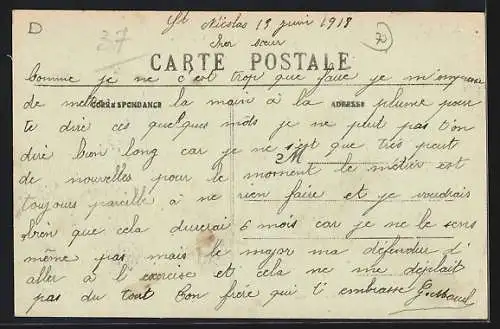 D
St Nicolas 13 juin 1918
37
Cher sœur
CARTE POSTALE
Comme je ne c'est trop que faire je m'
de mettre la main à la plume pour
CORRESPONDANCE
ADRESSE
te dire ces quelques mots je ne peut pas t'en
dire bien long car je ne s'est que très peut
M
de nouvelles pour le moment le métier est
toujours pareille à ne rien faire et je voudrais
bien que cela durerai 6 mois car je ne le sens
même pas mais le major ma défendue d'
aller à l'exercise et cela ne me déplait
pas du tout Ton frère qui t'embrasse